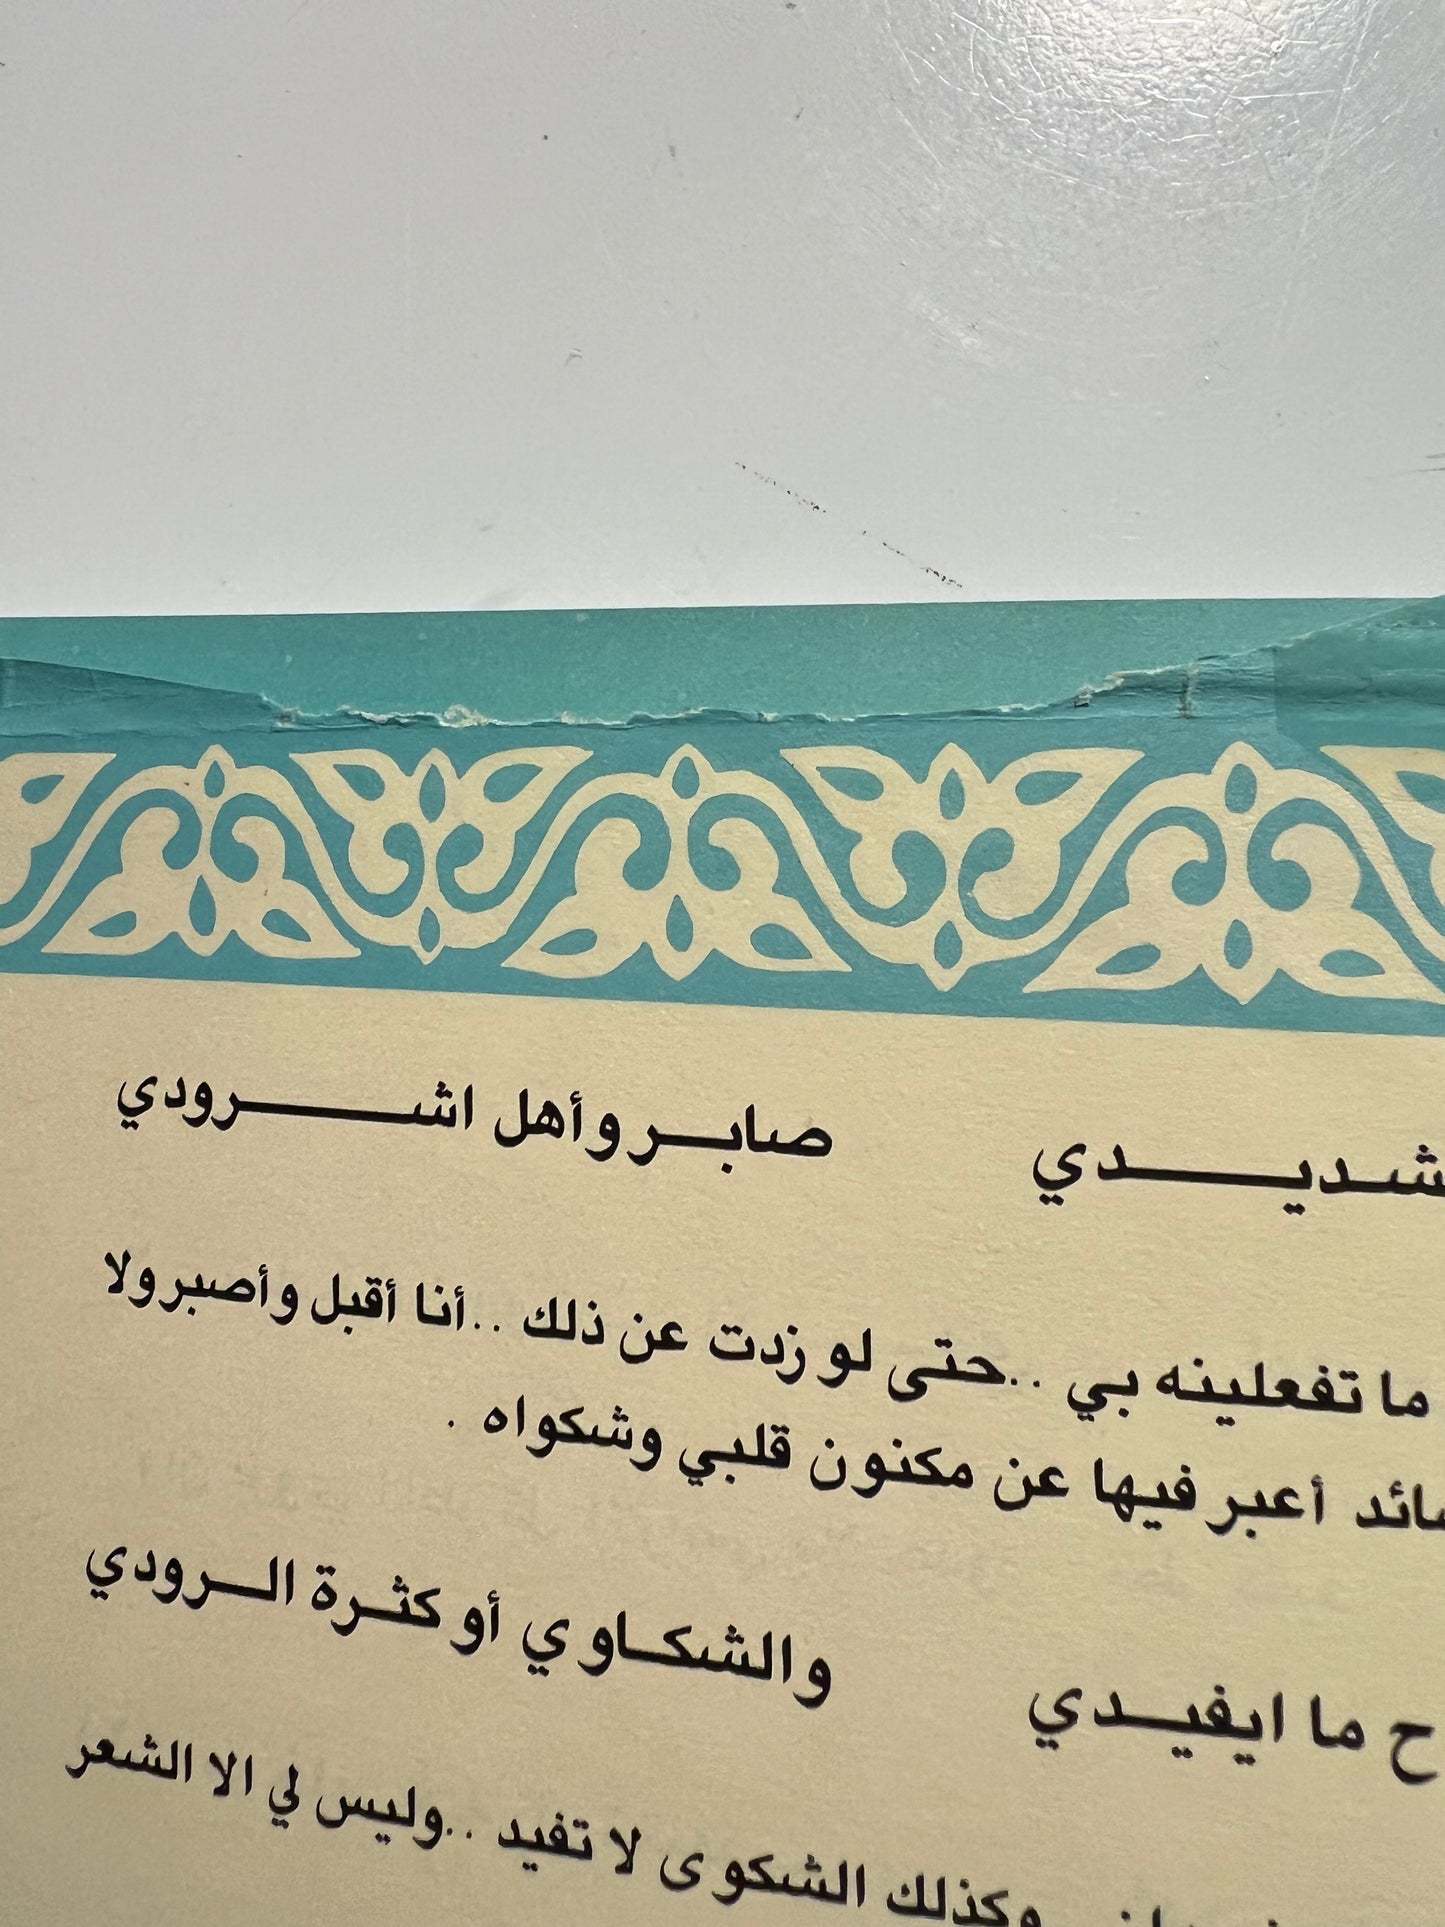 شديدي صابر وأهل اشرودي
ما تفعلينه بي ..حتى لو زدت عن ذلك ..أنا أقبل وأصبر ولا
أعبر فيها عن مكنون قلبي وشكواه .
ما ايفيدي والشكاوي أو كثرة الرودي
وكذلك الشكوى لا تفيد ..وليس لي الا الشعر